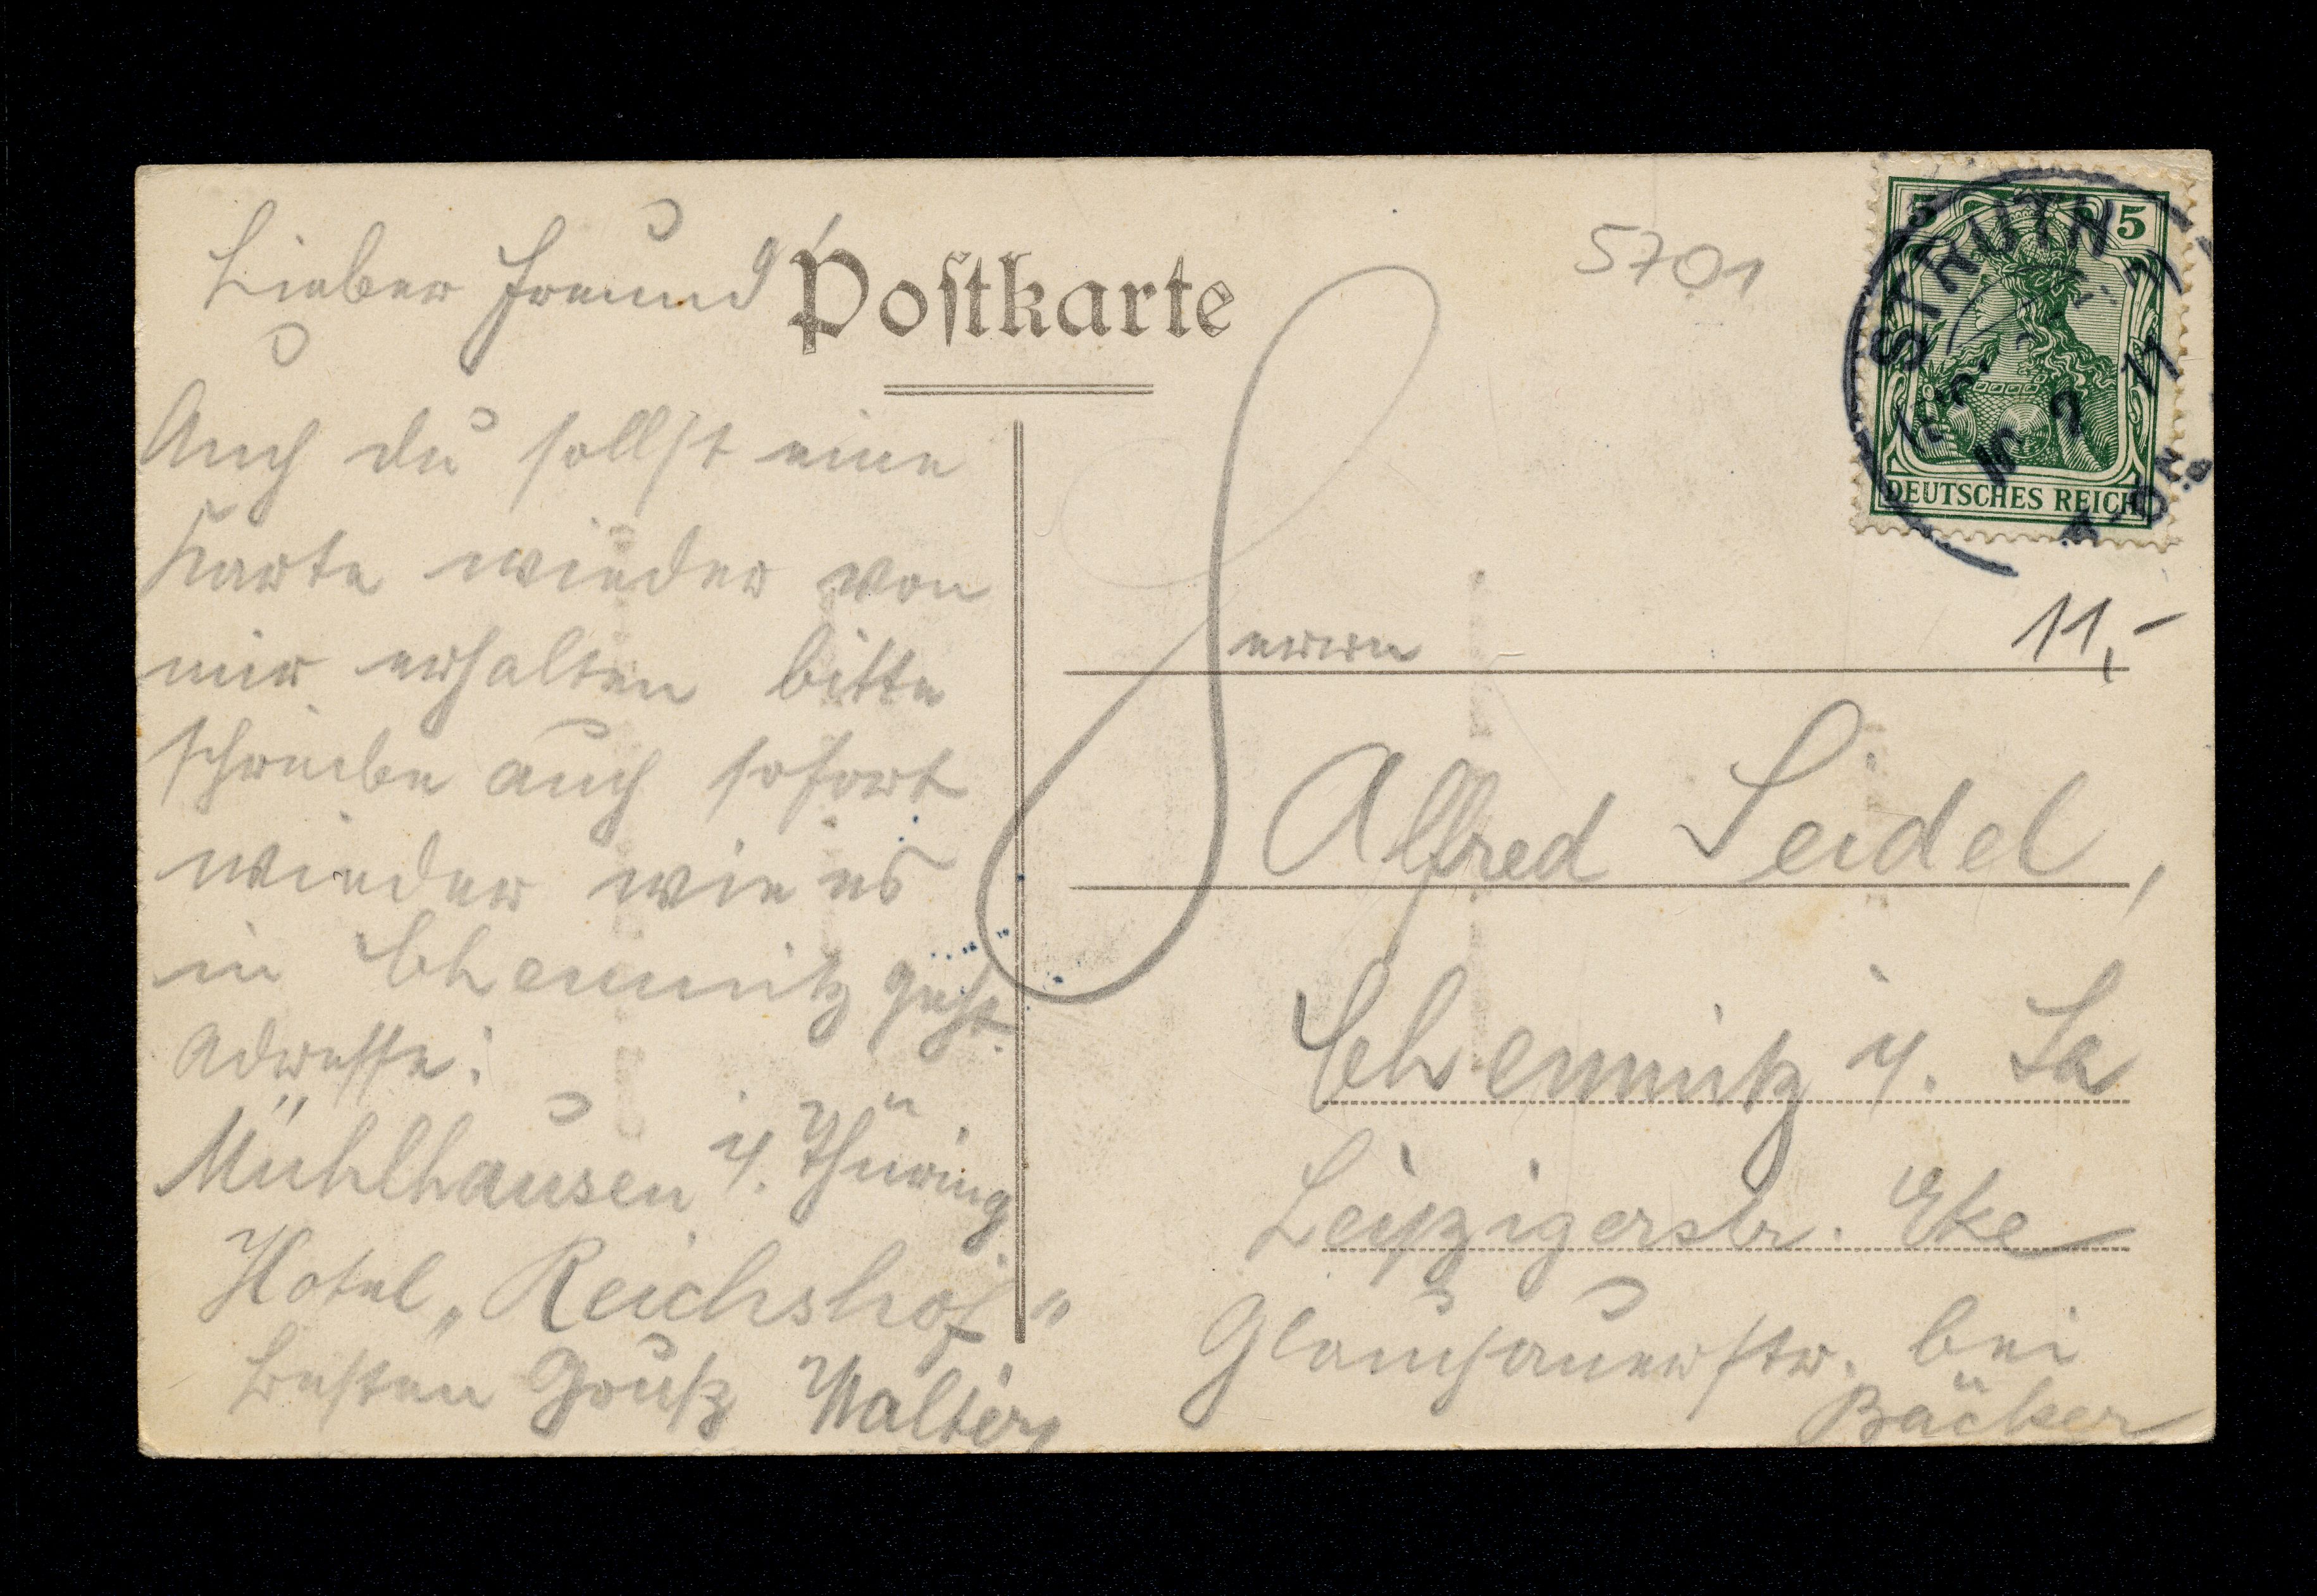 Lieber Freund!
Postkarte
5701
Auch du sollst eine
Karte wieder von
mir erhalten bitte
schreibe auch sofort
wieder wie es
in Chemnitz geht.
Adresse:
Mühlhausen i. Thüring
Hotel „Reichshof"
Besten Gruß Walter
5 5
DEUTSCHES REICH
STRUTH
11,-
Herrn
Alfred Seidel,
Chemnitz i. Sa
Leipzigerstr. Eke
Glauchauerstr. bei
Bäcker